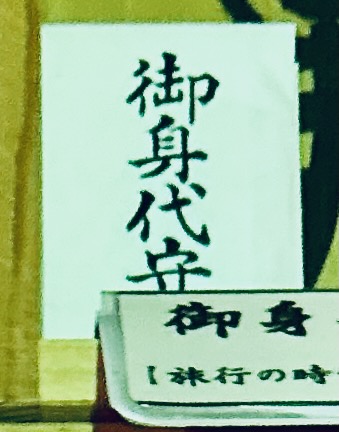 御身代守
御身
【旅行の時